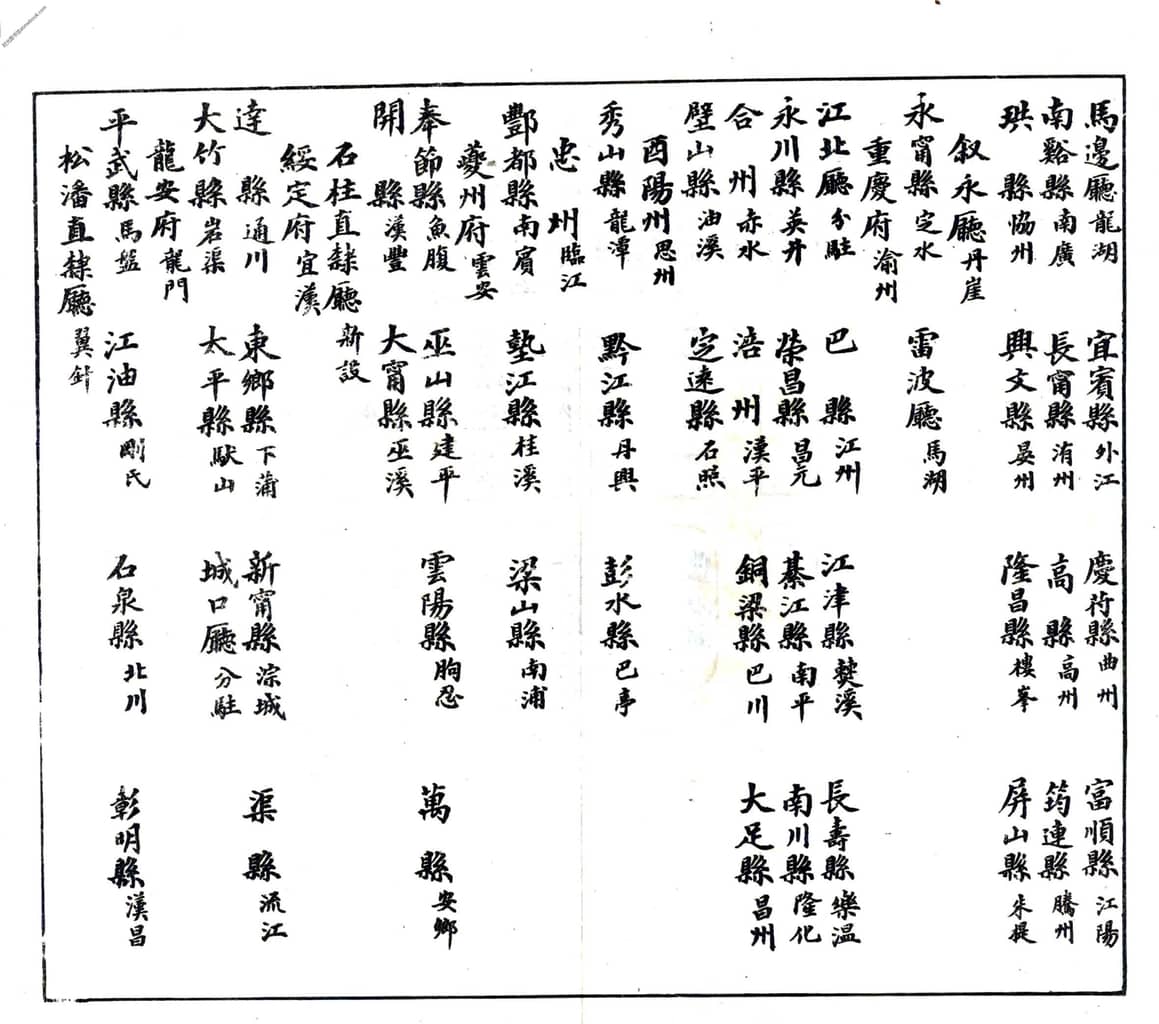 馬邊廳龍湖 宜賓縣外江 慶符縣曲州 富順縣江陽
南谿縣南廣 長甯縣淯州 高縣高州 筠連縣騰州
珙縣協州 興文縣晏州 隆昌縣樓峯 屏山縣朱提
叙永廳丹崖
永甯縣定水 雷波廳馬湖
重慶府渝州
江北廳分駐 巴縣江州 江津縣僰溪 長壽縣樂温
永川縣英井 榮昌縣昌元 綦江縣南平 南川縣隆化
合州赤水 涪州漢平 銅梁縣巴川 大足縣昌州
壁山縣油溪 定遠縣石照
酉陽州思州
秀山縣龍潭 黔江縣丹興 彭水縣巴亭
忠州臨江
酆都縣南賓 墊江縣桂溪 梁山縣南浦
夔州府雲安
奉節縣魚腹 巫山縣建平 雲陽縣朐忍 萬縣安鄉
開縣漢豐 大甯縣巫溪
石柱直隸廳新設
綏定府宜漢
達縣通川 東鄉縣下蒲 新甯縣淙城 渠縣流江
大竹縣岩渠 太平縣馱山 城口廳分駐
龍安府龍門
平武縣馬盤 江油縣剛氏 石泉縣北川 彰明縣漢昌
松潘直隸廳翼針